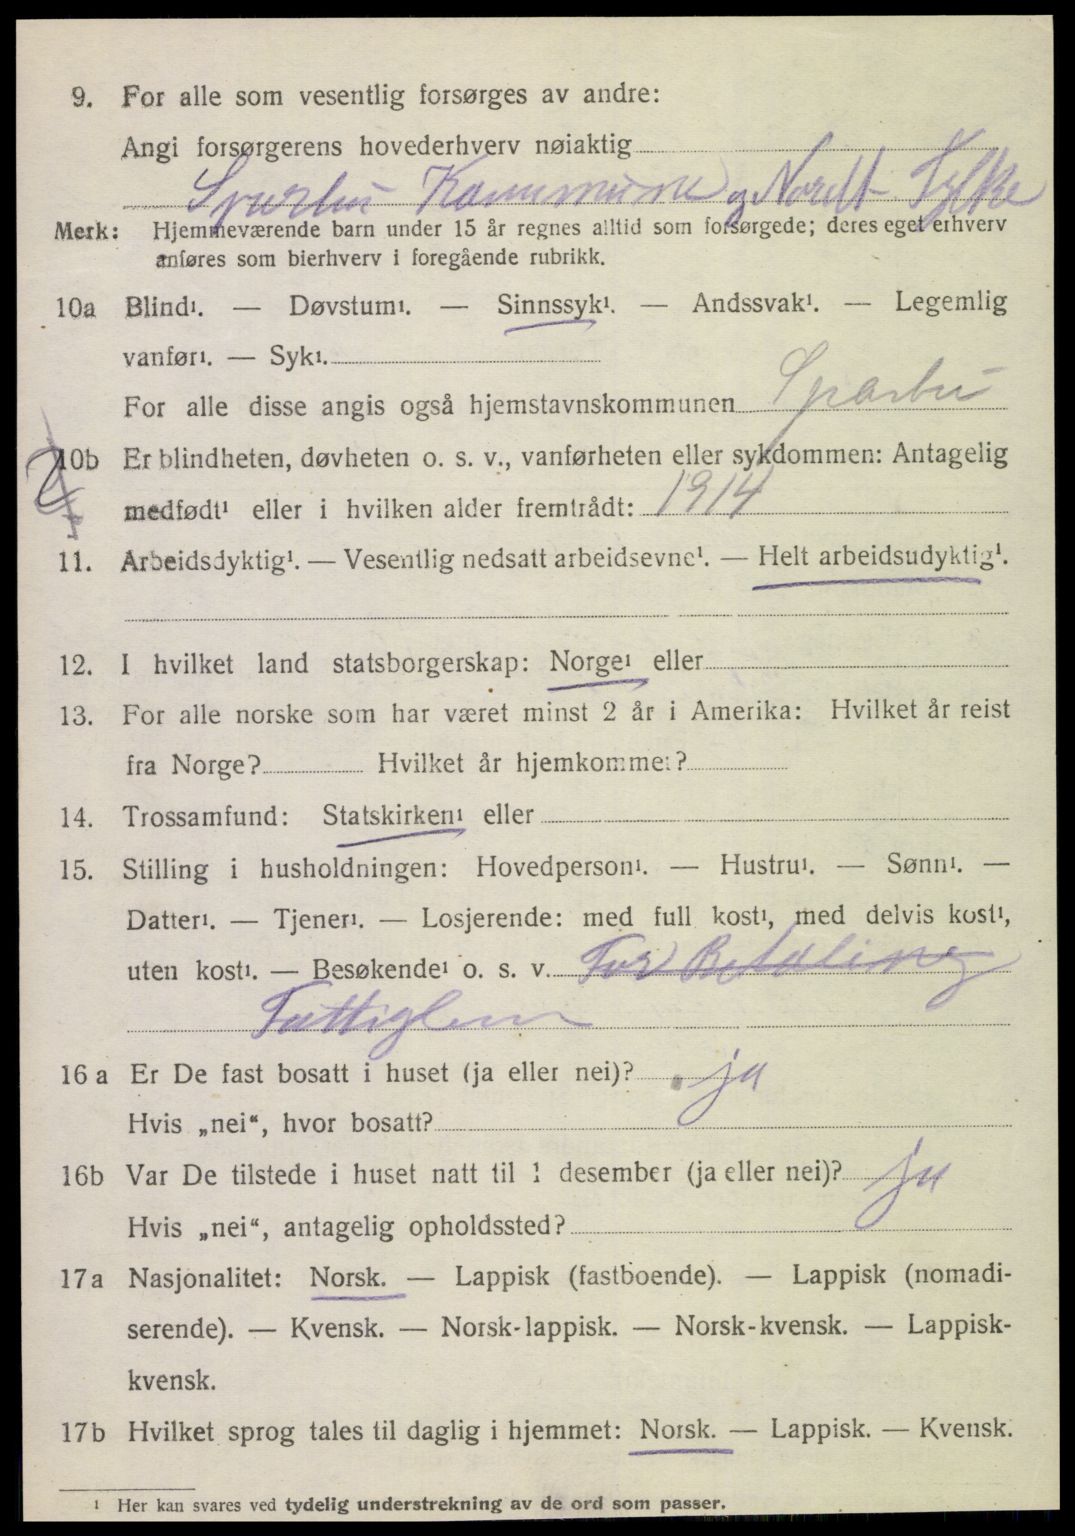 9. For alle som vesentlig forsørges av andre:
Angi forsørgerens hovederhverv nøiaktig
Sparbu Kommune og Nordt Fylke
Merk: Hjemmeværende barn under 15 år regnes alltid som forsørgede; deres eget erhverv
anføres som bierhverv i foregående rubrikk.
10a Blind¹. — Døvstum¹. — Sinnssyk¹. — Andssvak¹. — Legemlig
vanfør¹. — Syk¹.
For alle disse angis også hjemstavnskommunen Sparbu
10b Er blindheten, døvheten o. s. v., vanførheten eller sykdommen: Antagelig
medfødt¹ eller i hvilken alder fremtrådt: 1914
11. Arbeidsdyktig¹. — Vesentlig nedsatt arbeidsevne¹. — Helt arbeidsudyktig¹.
12. I hvilket land statsborgerskap: Norge¹ eller
13. For alle norske som har været minst 2 år i Amerika: Hvilket år reist
fra Norge? Hvilket år hjemkommet?
14. Trossamfund: Statskirken¹ eller
15. Stilling i husholdningen: Hovedperson¹. — Hustru¹. — Sønn¹. —
Datter¹. — Tjener¹. — Losjerende: med full kost¹, med delvis kost¹,
uten kost¹. — Besøkende¹ o. s. v. For Betaling
Fattiglem
16a Er De fast bosatt i huset (ja eller nei)? ja
Hvis „nei“, hvor bosatt?
16b Var De tilstede i huset natt til 1 desember (ja eller nei)? ja
Hvis „nei“, antagelig opholdssted?
17a Nasjonalitet: Norsk. — Lappisk (fastboende). — Lappisk (nomadi-
serende). — Kvensk. — Norsk-lappisk. — Norsk-kvensk. — Lappisk-
kvensk.
17b Hvilket sprog tales til daglig i hjemmet: Norsk. — Lappisk. — Kvensk.
¹ Her kan svares ved tydelig understrekning av de ord som passer.